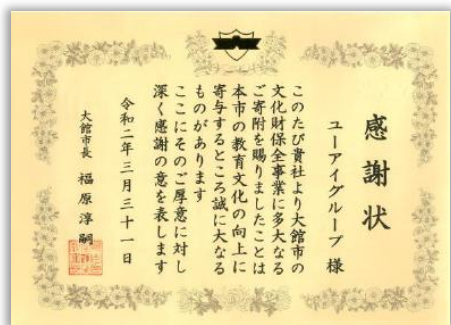 感謝状
ユーアイグループ 様
このたび貴社より大館市の
文化財保全事業に多大なる
ご寄附を賜りましたことは
本市の教育文化の向上に
寄与するところ誠に大なる
ものがあります
ここにそのご厚意に対し
深く感謝の意を表します
令和二年三月三十一日
大館市長 福原淳嗣